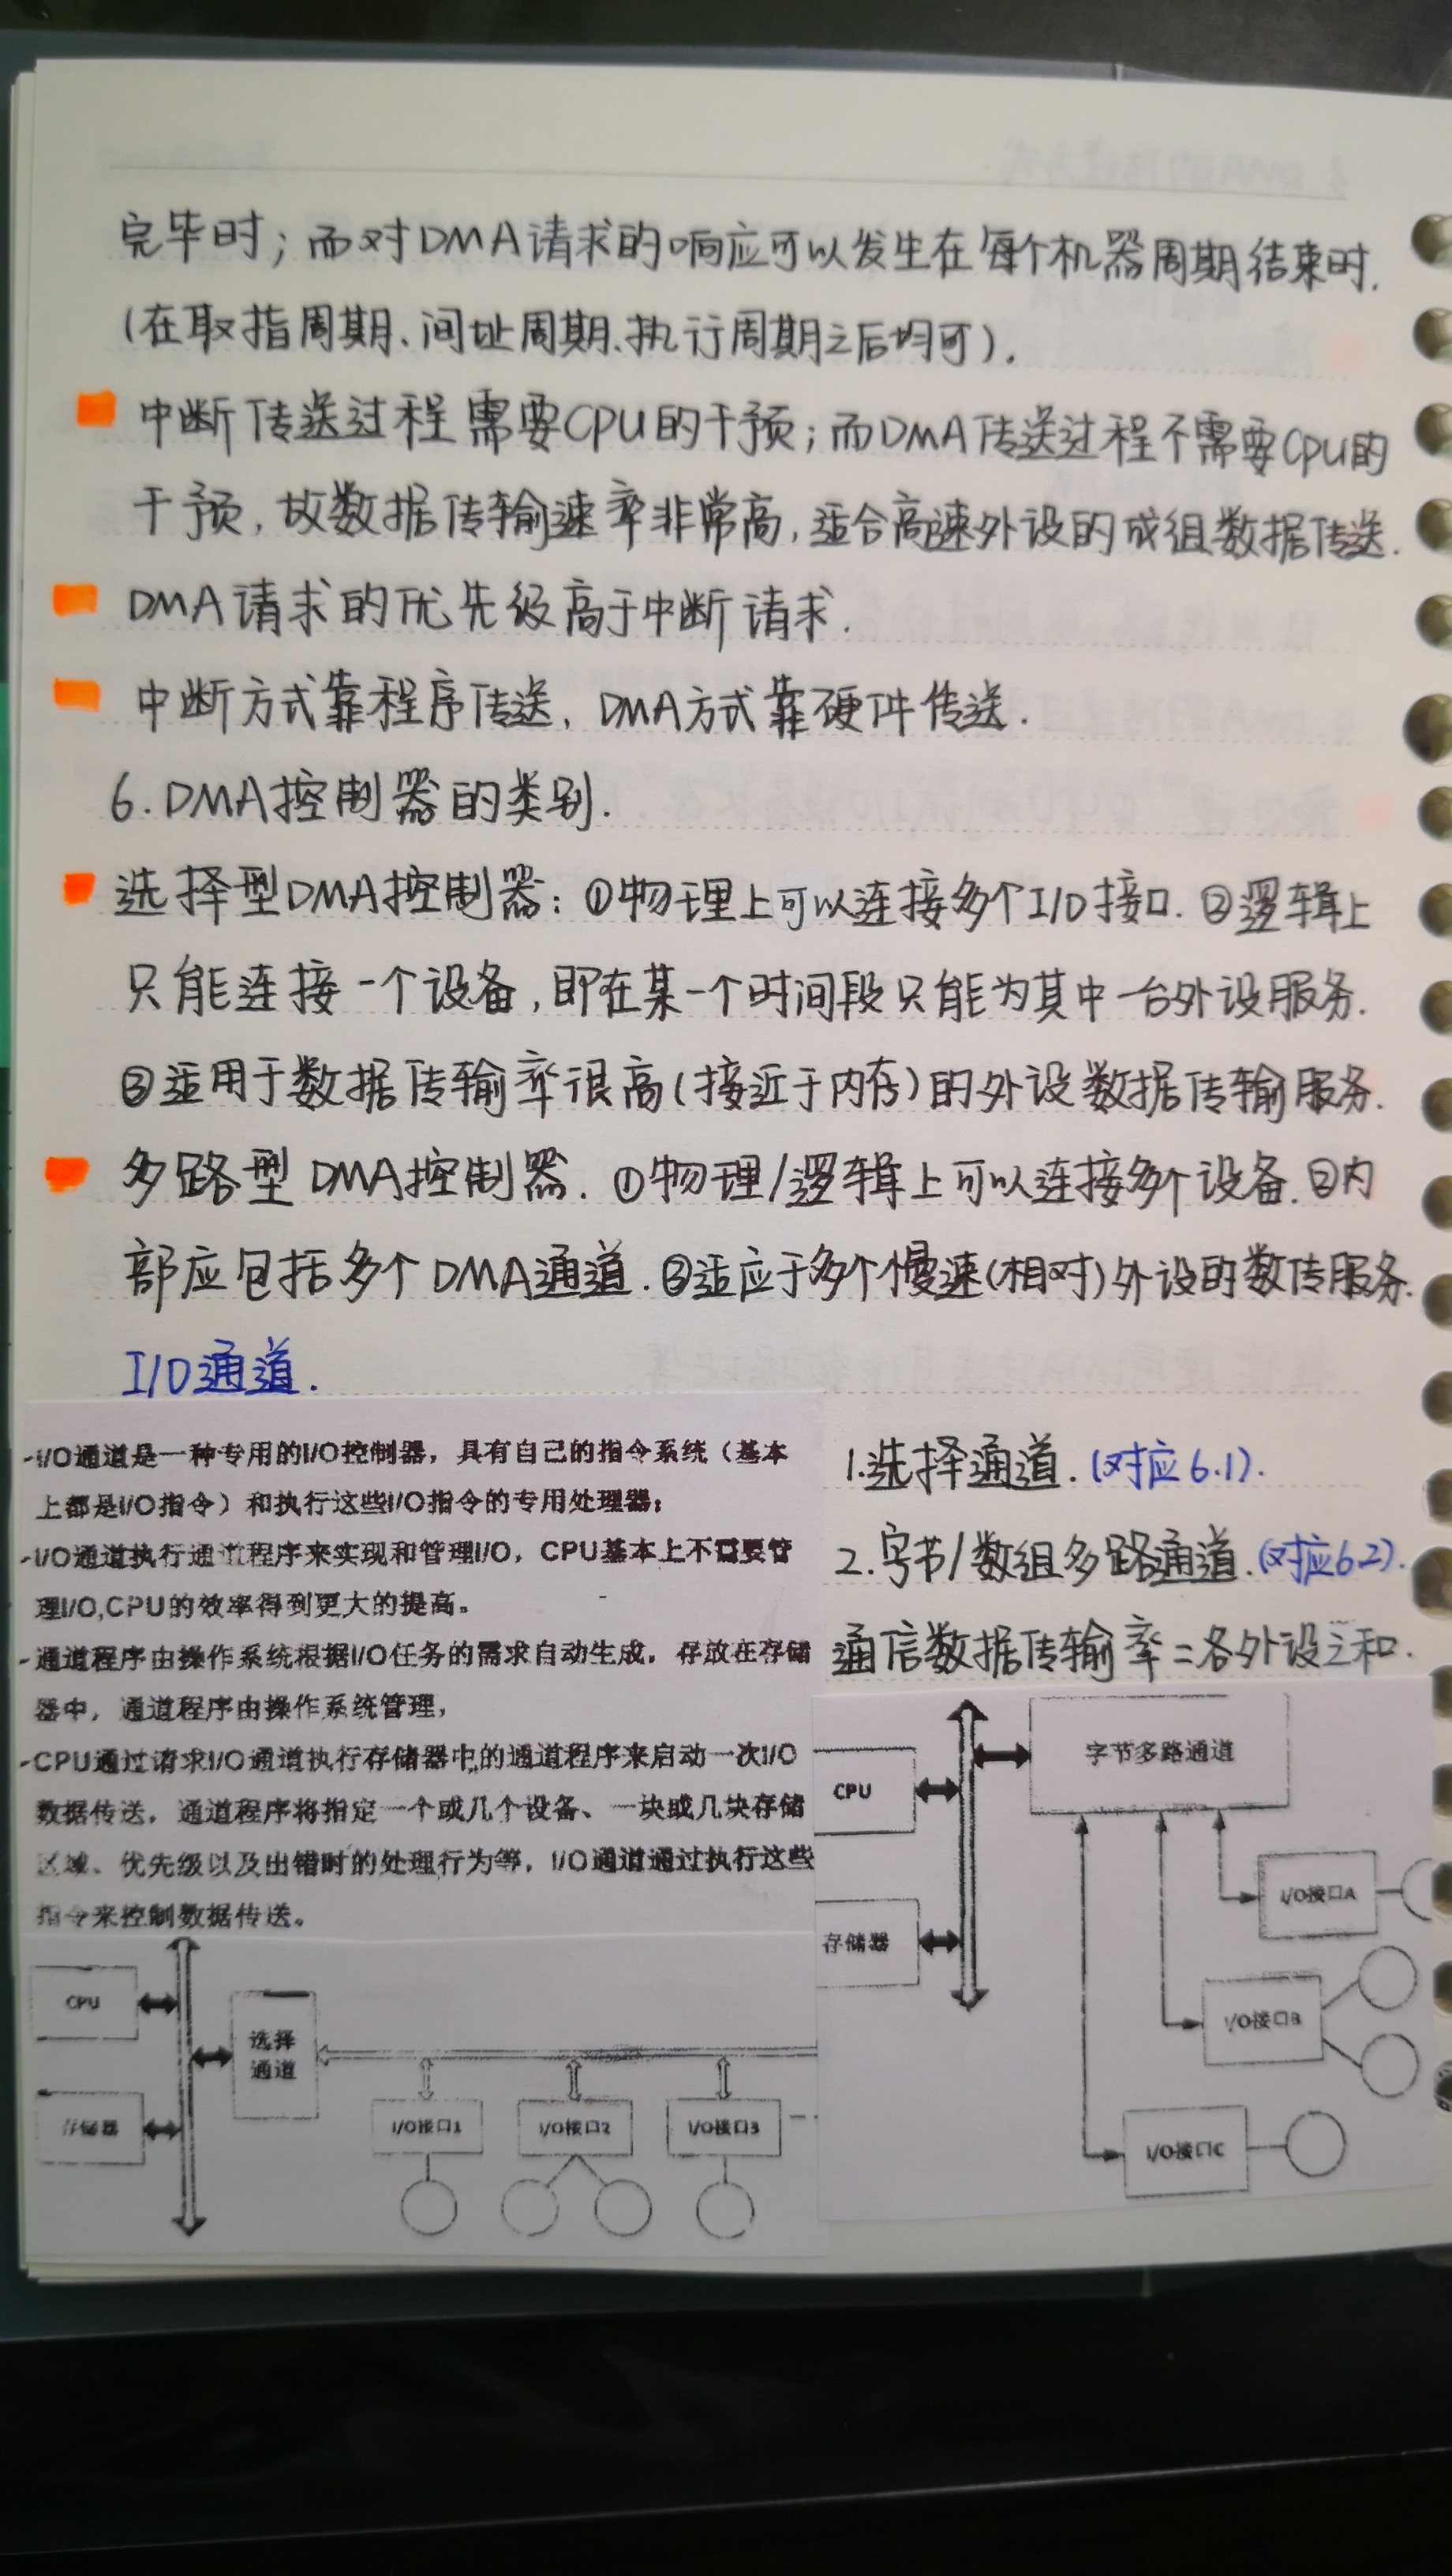 完毕时；而对DMA请求的响应可以发生在每个机器周期结束时.
(在取指周期、间址周期、执行周期之后均可).
中断传送过程需要CPU的干预；而DMA传送过程不需要CPU的
干预，故数据传输速率非常高，适合高速外设的成组数据传送.
DMA请求的优先级高于中断请求.
中断方式靠程序传送，DMA方式靠硬件传送.
6.DMA控制器的类别.
选择型DMA控制器：①物理上可以连接多个I/O接口.②逻辑上
只能连接一个设备，即在某一个时间段只能为其中一台外设服务.
③适用于数据传输率很高(接近于内存)的外设数据传输服务.
多路型DMA控制器.①物理/逻辑上可以连接多个设备.②内
部应包括多个DMA通道.③适应于多个慢速(相对)外设的数传服务.
I/O通道.
-I/O通道是一种专用的I/O控制器，具有自己的指令系统（基本
上都是I/O指令）和执行这些I/O指令的专用处理器；
-I/O通道执行通道程序来实现和管理I/O，CPU基本上不需要管
理I/O,CPU的效率得到更大的提高。
-通道程序由操作系统根据I/O任务的需求自动生成，存放在存储
器中，通道程序由操作系统管理，
-CPU通过请求I/O通道执行存储器中的通道程序来启动一次I/O
数据传送，通道程序将指定一个或几个设备、一块或几块存储
区域、优先级以及出错时的处理行为等，I/O通道通过执行这些
指令来控制数据传送。
CPU
选择
通道
存储器
I/O接口1
I/O接口2
I/O接口3
1.选择通道.(对应6.1).
2.字节/数组多路通道.(对应6.2).
通信数据传输率=各外设之和.
字节多路通道
CPU
I/O接口A
存储器
I/O接口B
I/O接口C